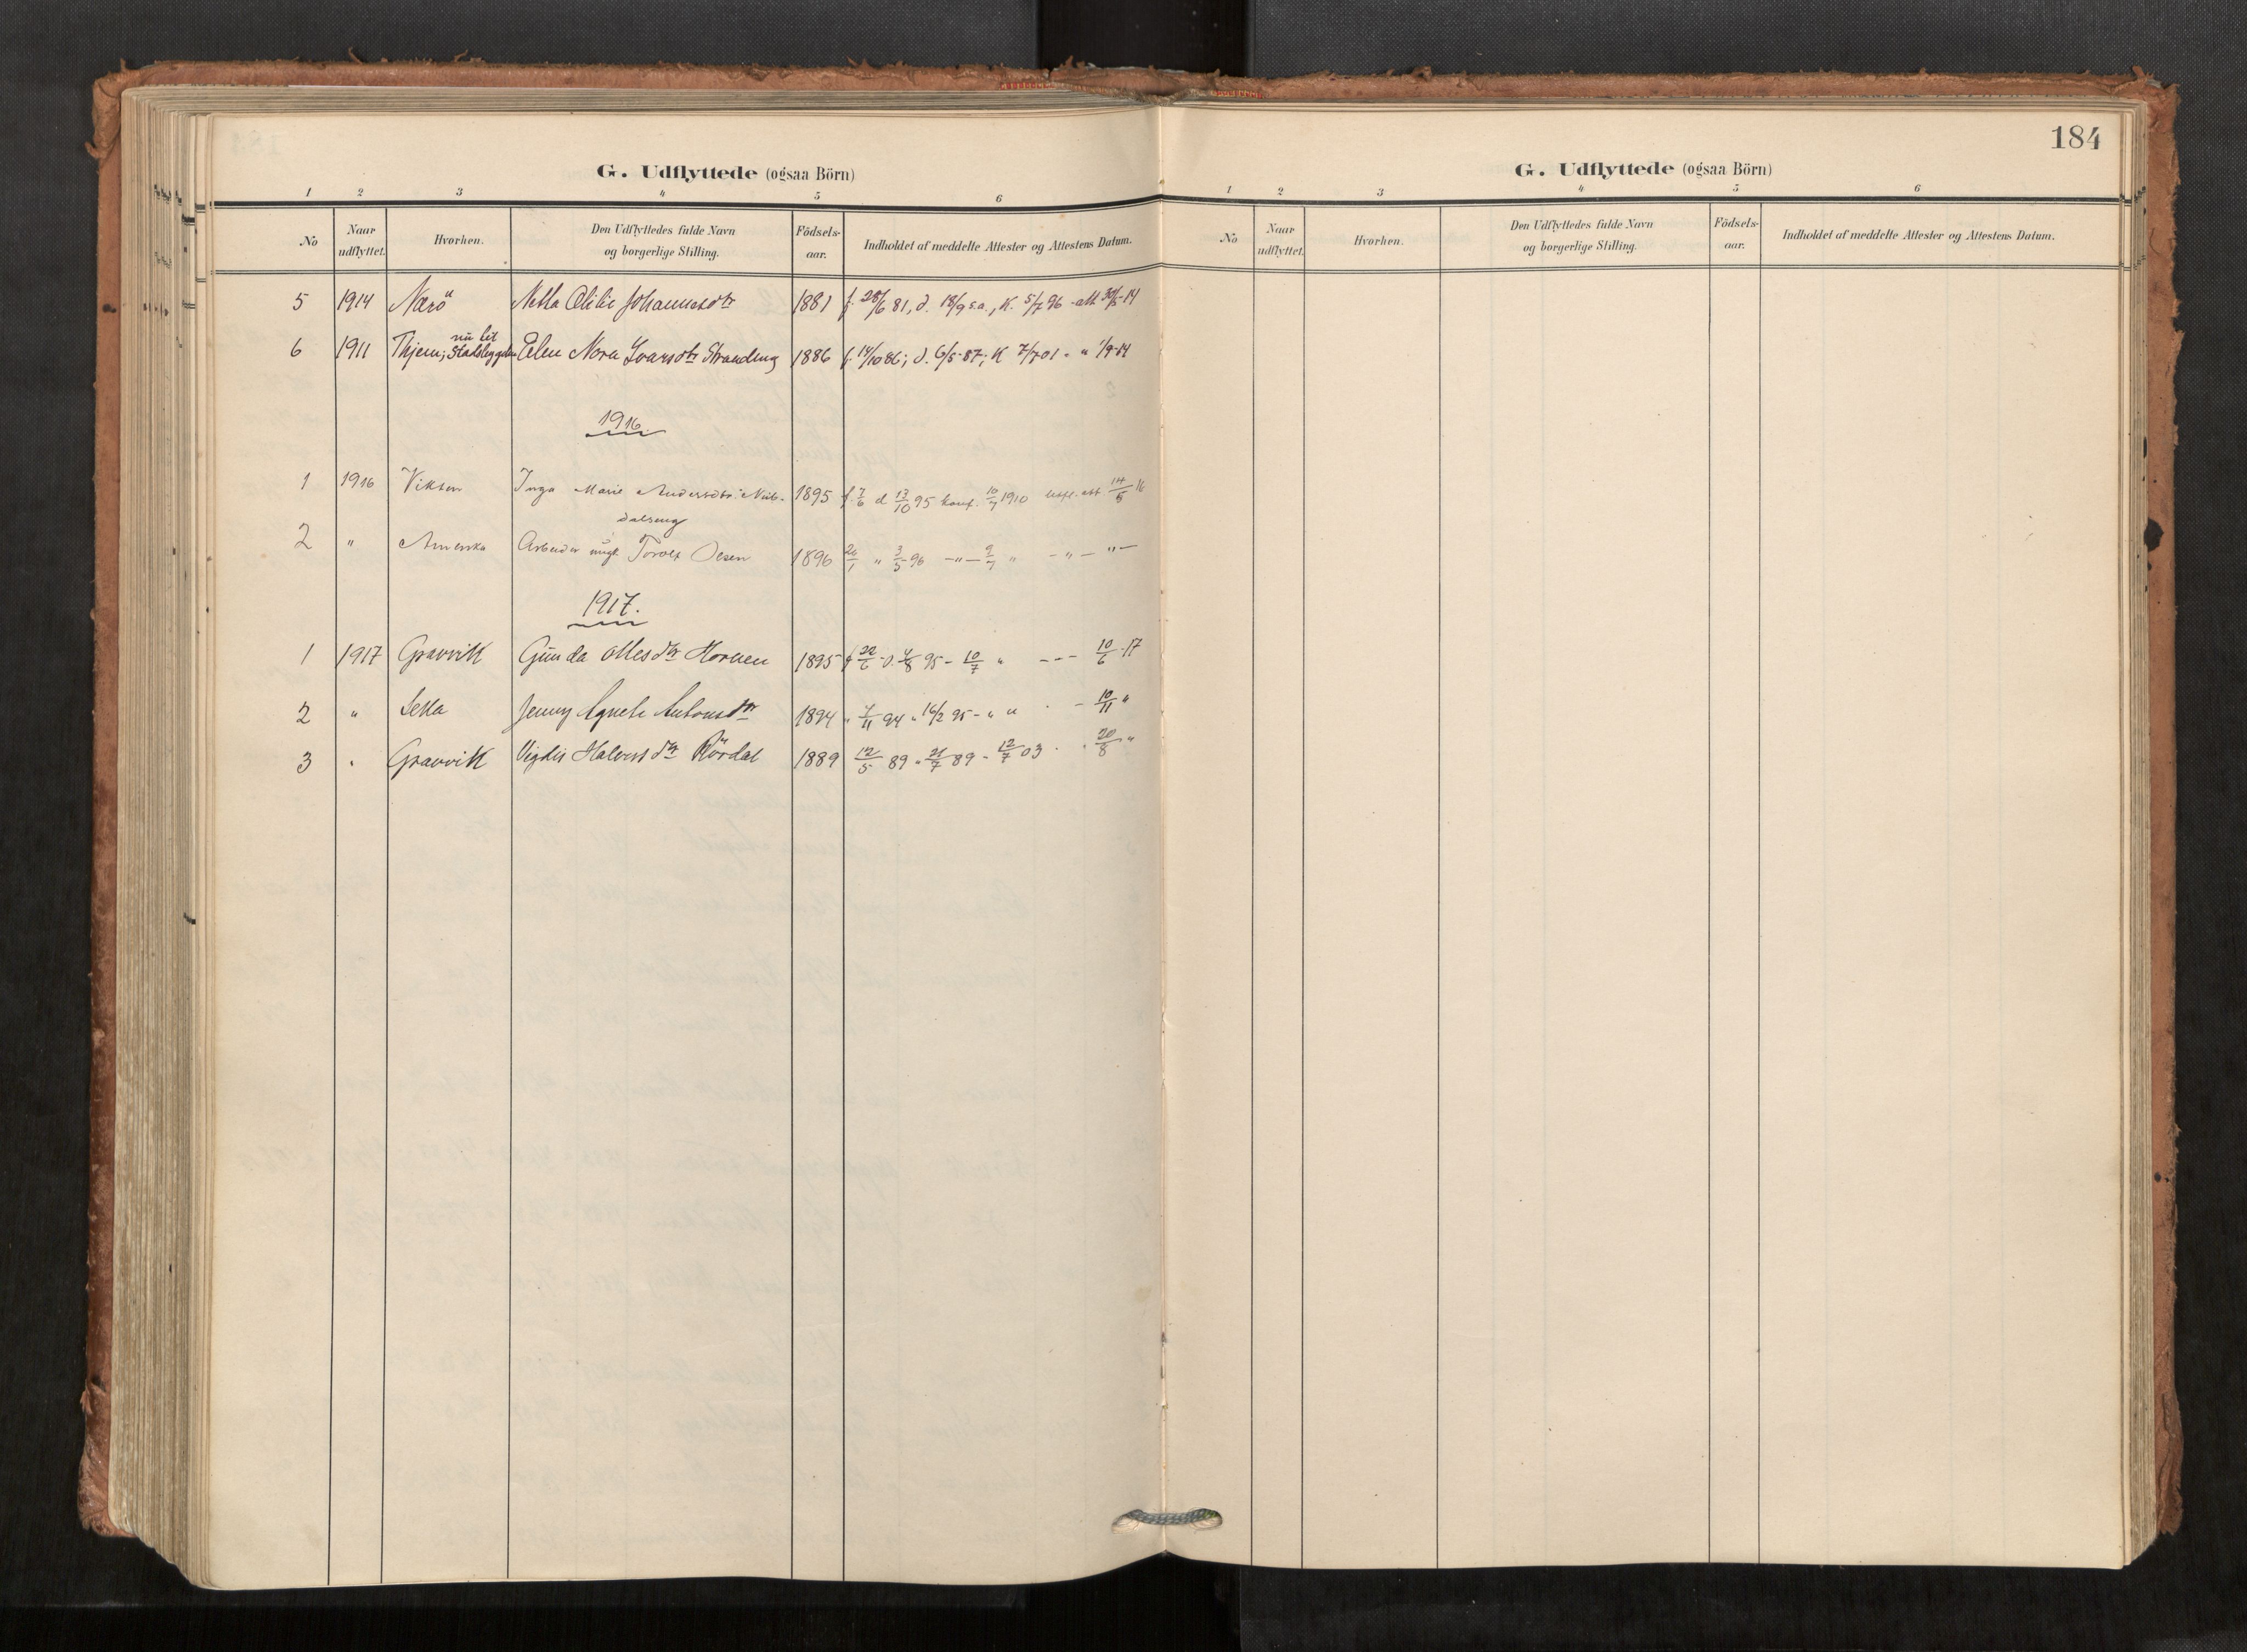 184
G. Udflyttede (ogsaa Börn)
1 2 3 4 5 6
No Naar udflyttet. Hvorhen. Den Udflyttedes fulde Navn og borgerlige Stilling. Födsels-aar. Indholdet af meddelte Attester og Attestens Datum.
5 1914 Nærö Netta Otilie Johannesdtr 1881 f. 28/6 81, d. 18/9 s.a., K. 5/7 96 - att 30/5-14
nu til
6 1911 Thjem; Stadsbygden Elen Nora Ivarsdtr Strandeng 1886 f. 14/10 86; d. 6/5-87; K 7/7 01 - " 1/9-14
1916.
1 1916 Vikten Inga Marie Andersdtr. 1895 f. 7/6 d 13/10 95 konf. 10/7 1910 att 14/5 16
dalseng
2 " Amerika Arbeider ungk. Torolf Olsen 1896 26/1 " 3/5 96 -"- 9/7 " -"- "-
1917.
1 1917 Gravvik Gunda Ottesdtr Hornen 1895 f 22/6 d. 4/8 95 - 10/7 " --- 10/6-17
2 " Leka Jenny Agnete Antonsdtr 1894 " 7/11 94 " 16/2 95 - " " - 10/11 "
3 " Gravvik Vigdis Halversdtr Rördal 1889 12/5 89 " 21/7 89 - 12/7 03 " 20/8 "
G. Udflyttede (ogsaa Börn)
1 2 3 4 5 6
No Naar udflyttet. Hvorhen. Den Udflyttedes fulde Navn og borgerlige Stilling. Födsels-aar. Indholdet af meddelte Attester og Attestens Datum.